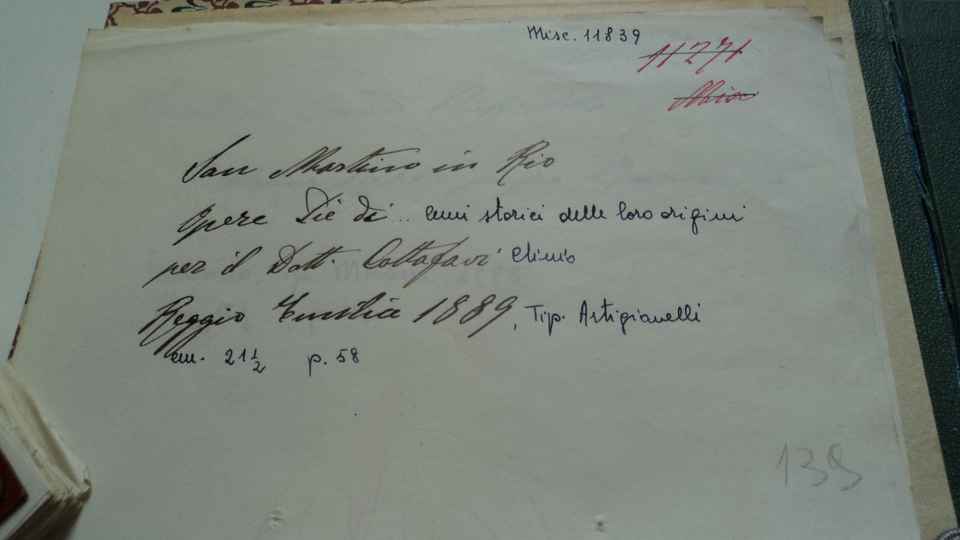 Misc. 11839
11271
Misc
San Martino in Rio
Opere Pie di... cenni storici delle loro origini
per il Dott. Cottafavi Clinio
Reggio Emilia 1889, Tip. Artigianelli
cm. 21 1/2 p. 58
139